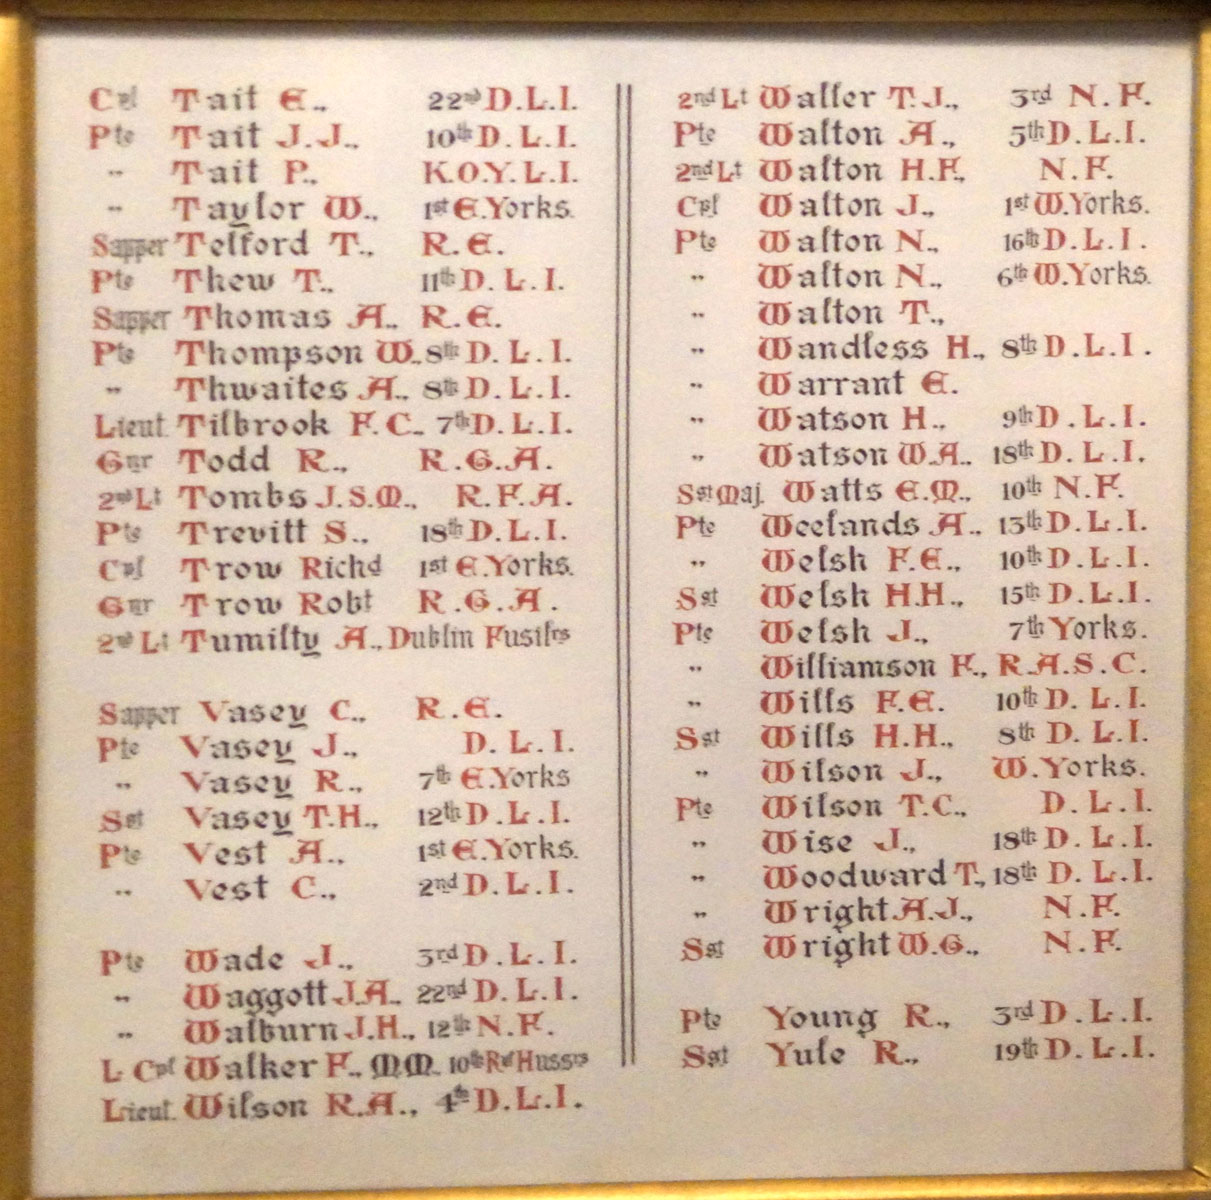 Cpl Tait E., 22nd D.L.I.
Pte Tait J.J., 10th D.L.I.
" Tait P., K.O.Y.L.I.
" Taylor W., 1st E.Yorks.
Sapper Telford T., R.E.
Pte Thew T., 11th D.L.I.
Sapper Thomas A., R.E.
Pte Thompson W., 8th D.L.I.
" Thwaites A., 8th D.L.I.
Lieut. Tilbrook F.C., 7th D.L.I.
Gnr Todd R., R.G.A.
2nd Lt Tombs J.S.M., R.F.A.
Pte Trevitt S., 18th D.L.I.
Cpl Trow Richd 1st E.Yorks.
Gnr Trow Robt R.G.A.
2nd Lt Tumilty A., Dublin Fusilrs
Sapper Vasey C., R.E.
Pte Vasey J., D.L.I.
" Vasey R., 7th E.Yorks
Sgt Vasey T.H., 12th D.L.I.
Pte Vest A., 1st E.Yorks.
" Vest C., 2nd D.L.I.
Pte Wade J., 3rd D.L.I.
" Waggott J.A., 22nd D.L.I.
" Walburn J.H., 12th N.F.
L Cpl Walker F., M.M. 10th Ryl Hussrs
Lieut. Wilson R.A., 4th D.L.I.
2nd Lt Waller T.J., 3rd N.F.
Pte Walton A., 5th D.L.I.
2nd Lt Walton H.F., N.F.
Cpl Walton J., 1st W.Yorks.
Pte Walton N., 16th D.L.I.
" Walton N., 6th W.Yorks.
" Walton T.,
" Wandless H., 8th D.L.I.
" Warrant E.
" Watson H., 9th D.L.I.
" Watson W.A., 18th D.L.I.
Sgt Maj. Watts E.M., 10th N.F.
Pte Weelands A., 13th D.L.I.
" Welsh F.E., 10th D.L.I.
Sgt Welsh H.H., 15th D.L.I.
Pte Welsh J., 7th Yorks.
" Williamson F., R.A.S.C.
" Wills F.E. 10th D.L.I.
Sgt Wills H.H., 8th D.L.I.
" Wilson J., W.Yorks.
Pte Wilson T.C., D.L.I.
" Wise J., 18th D.L.I.
" Woodward T., 18th D.L.I.
" Wright A.J., N.F.
Sgt Wright W.G., N.F.
Pte Young R., 3rd D.L.I.
Sgt Yule R., 19th D.L.I.